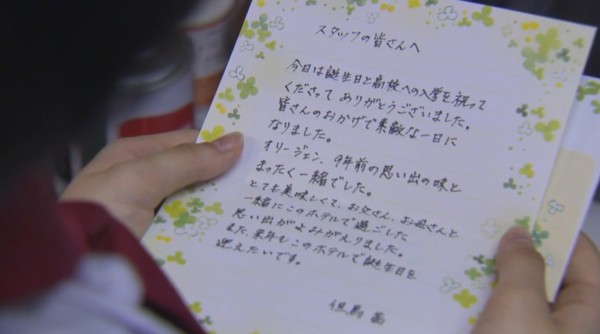 スタッフの皆さんへ
今日は誕生日と高校への入学を祝って
くださって ありがとうございました。
皆さんのおかげで素敵な一日に
なりました。
オリージェン、9年前の思い出の味と
まったく一緒でした。
とても美味しくて、お父さん、お母さんと
一緒にこのホテルで過ごした
思い出がよみがえりました。
また、来年もこのホテルで誕生日を
迎えたいです。
但馬